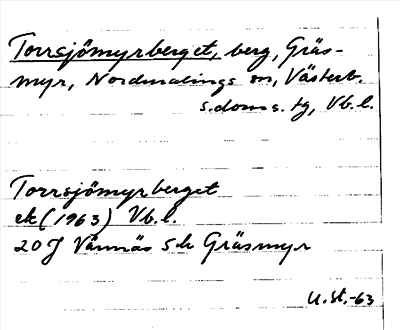 Torrsjömyrberget, berg, Gräs-
myr, Nordmalings sn, Västerb.
s.doms. tg, Vb.l.
Torrsjömyrberget
ek (1963) Vb.l.
20 J Vännäs 5h Gräsmyr
U.St.-63